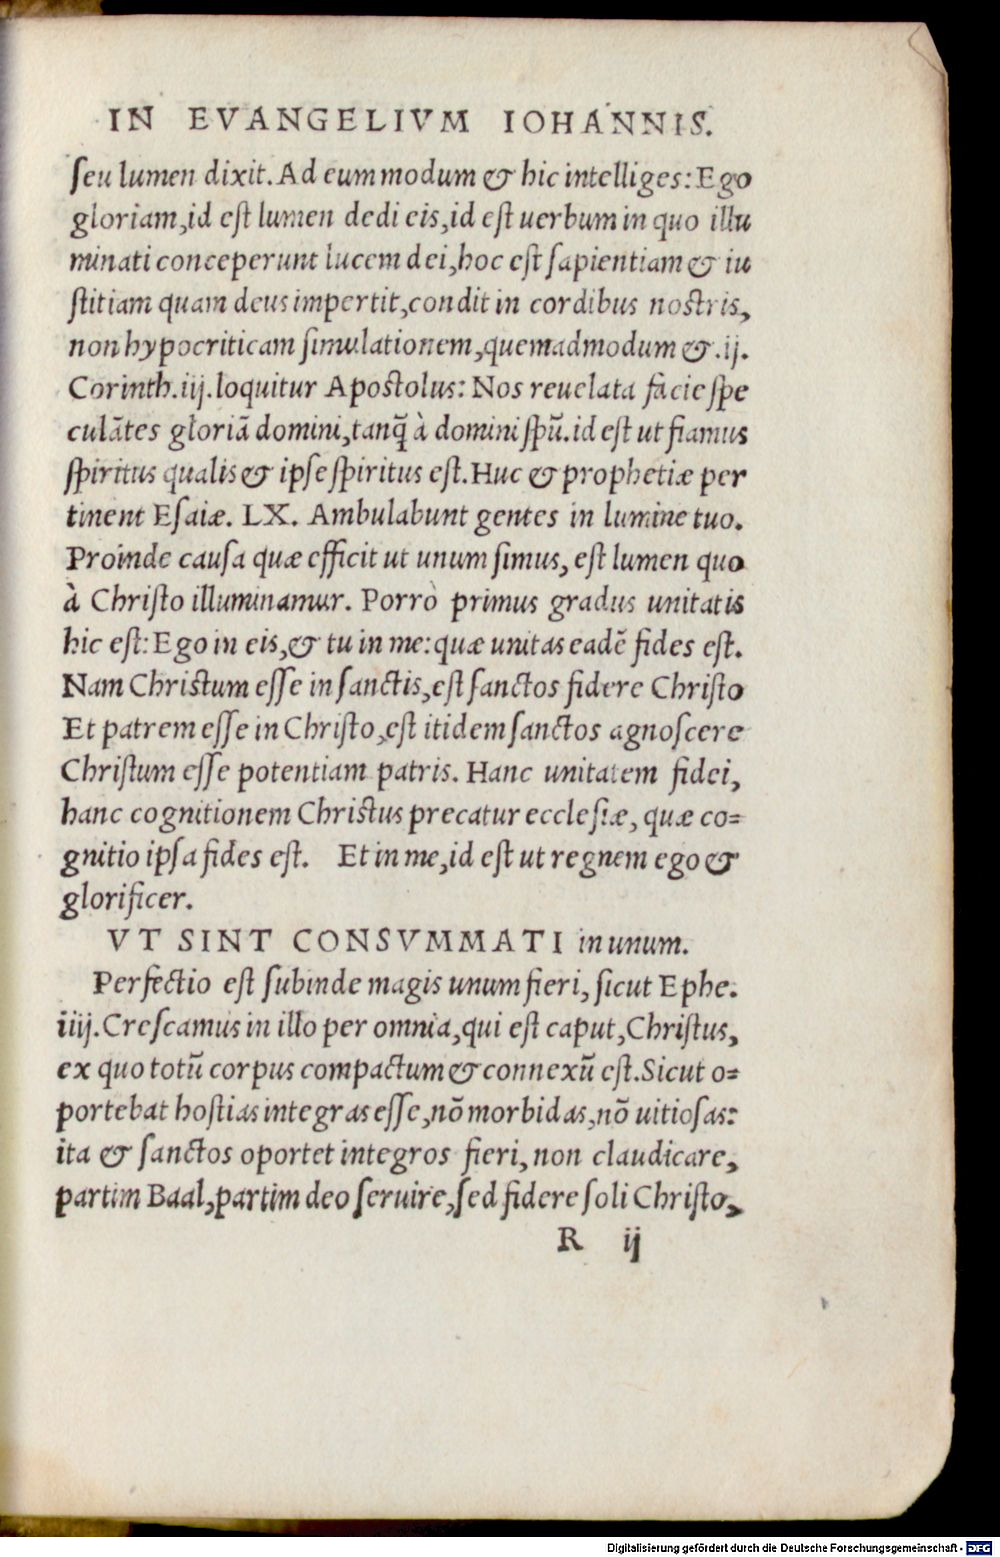 IN EVANGELIVM IOHANNIS.
ſeu lumen dixit. Ad eum modum & hic intelliges: Ego
gloriam, id eſt lumen dedi eis, id eſt uerbum in quo illu
minati conceperunt lucem dei, hoc eſt ſapientiam & iu
ſtitiam quam deus impertit, condit in cordibus noſtris,
non hypocriticam ſimulationem, quemadmodum & .ij.
Corinth.iij. loquitur Apoſtolus: Nos reuelata facie ſpe
culãtes gloriã domini, tanq̃ à domini ſpũ. id eſt ut fiamus
ſpiritus qualis & ipſe ſpiritus eſt. Huc & prophetiæ per
tinent Eſaiæ. LX. Ambulabunt gentes in lumine tuo.
Proinde cauſa quæ efficit ut unum ſimus, eſt lumen quo
à Chriſto illuminamur. Porrò primus gradus unitatis
hic eſt: Ego in eis, & tu in me: quæ unitas eadẽ fides eſt.
Nam Chriſtum eſſe in ſanctis, eſt ſanctos fidere Chriſto
Et patrem eſſe in Chriſto, eſt itidem ſanctos agnoſcere
Chriſtum eſſe potentiam patris. Hanc unitatem fidei,
hanc cognitionem Chriſtus precatur eccleſiæ, quæ co=
gnitio ipſa fides eſt. Et in me, id eſt ut regnem ego &
glorificer.
VT SINT CONSVMMATI in unum.
Perfectio eſt ſubinde magis unum fieri, ſicut Ephe.
iiij. Creſcamus in illo per omnia, qui eſt caput, Chriſtus,
ex quo totũ corpus compactum & connexũ eſt. Sicut o=
portebat hoſtias integras eſſe, nõ morbidas, nõ uitioſas:
ita & ſanctos oportet integros fieri, non claudicare,
partim Baal, partim deo ſeruire, ſed fidere ſoli Chriſto,
R ij
Digitalisierung gefördert durch die Deutsche Forschungsgemeinschaft - DFG